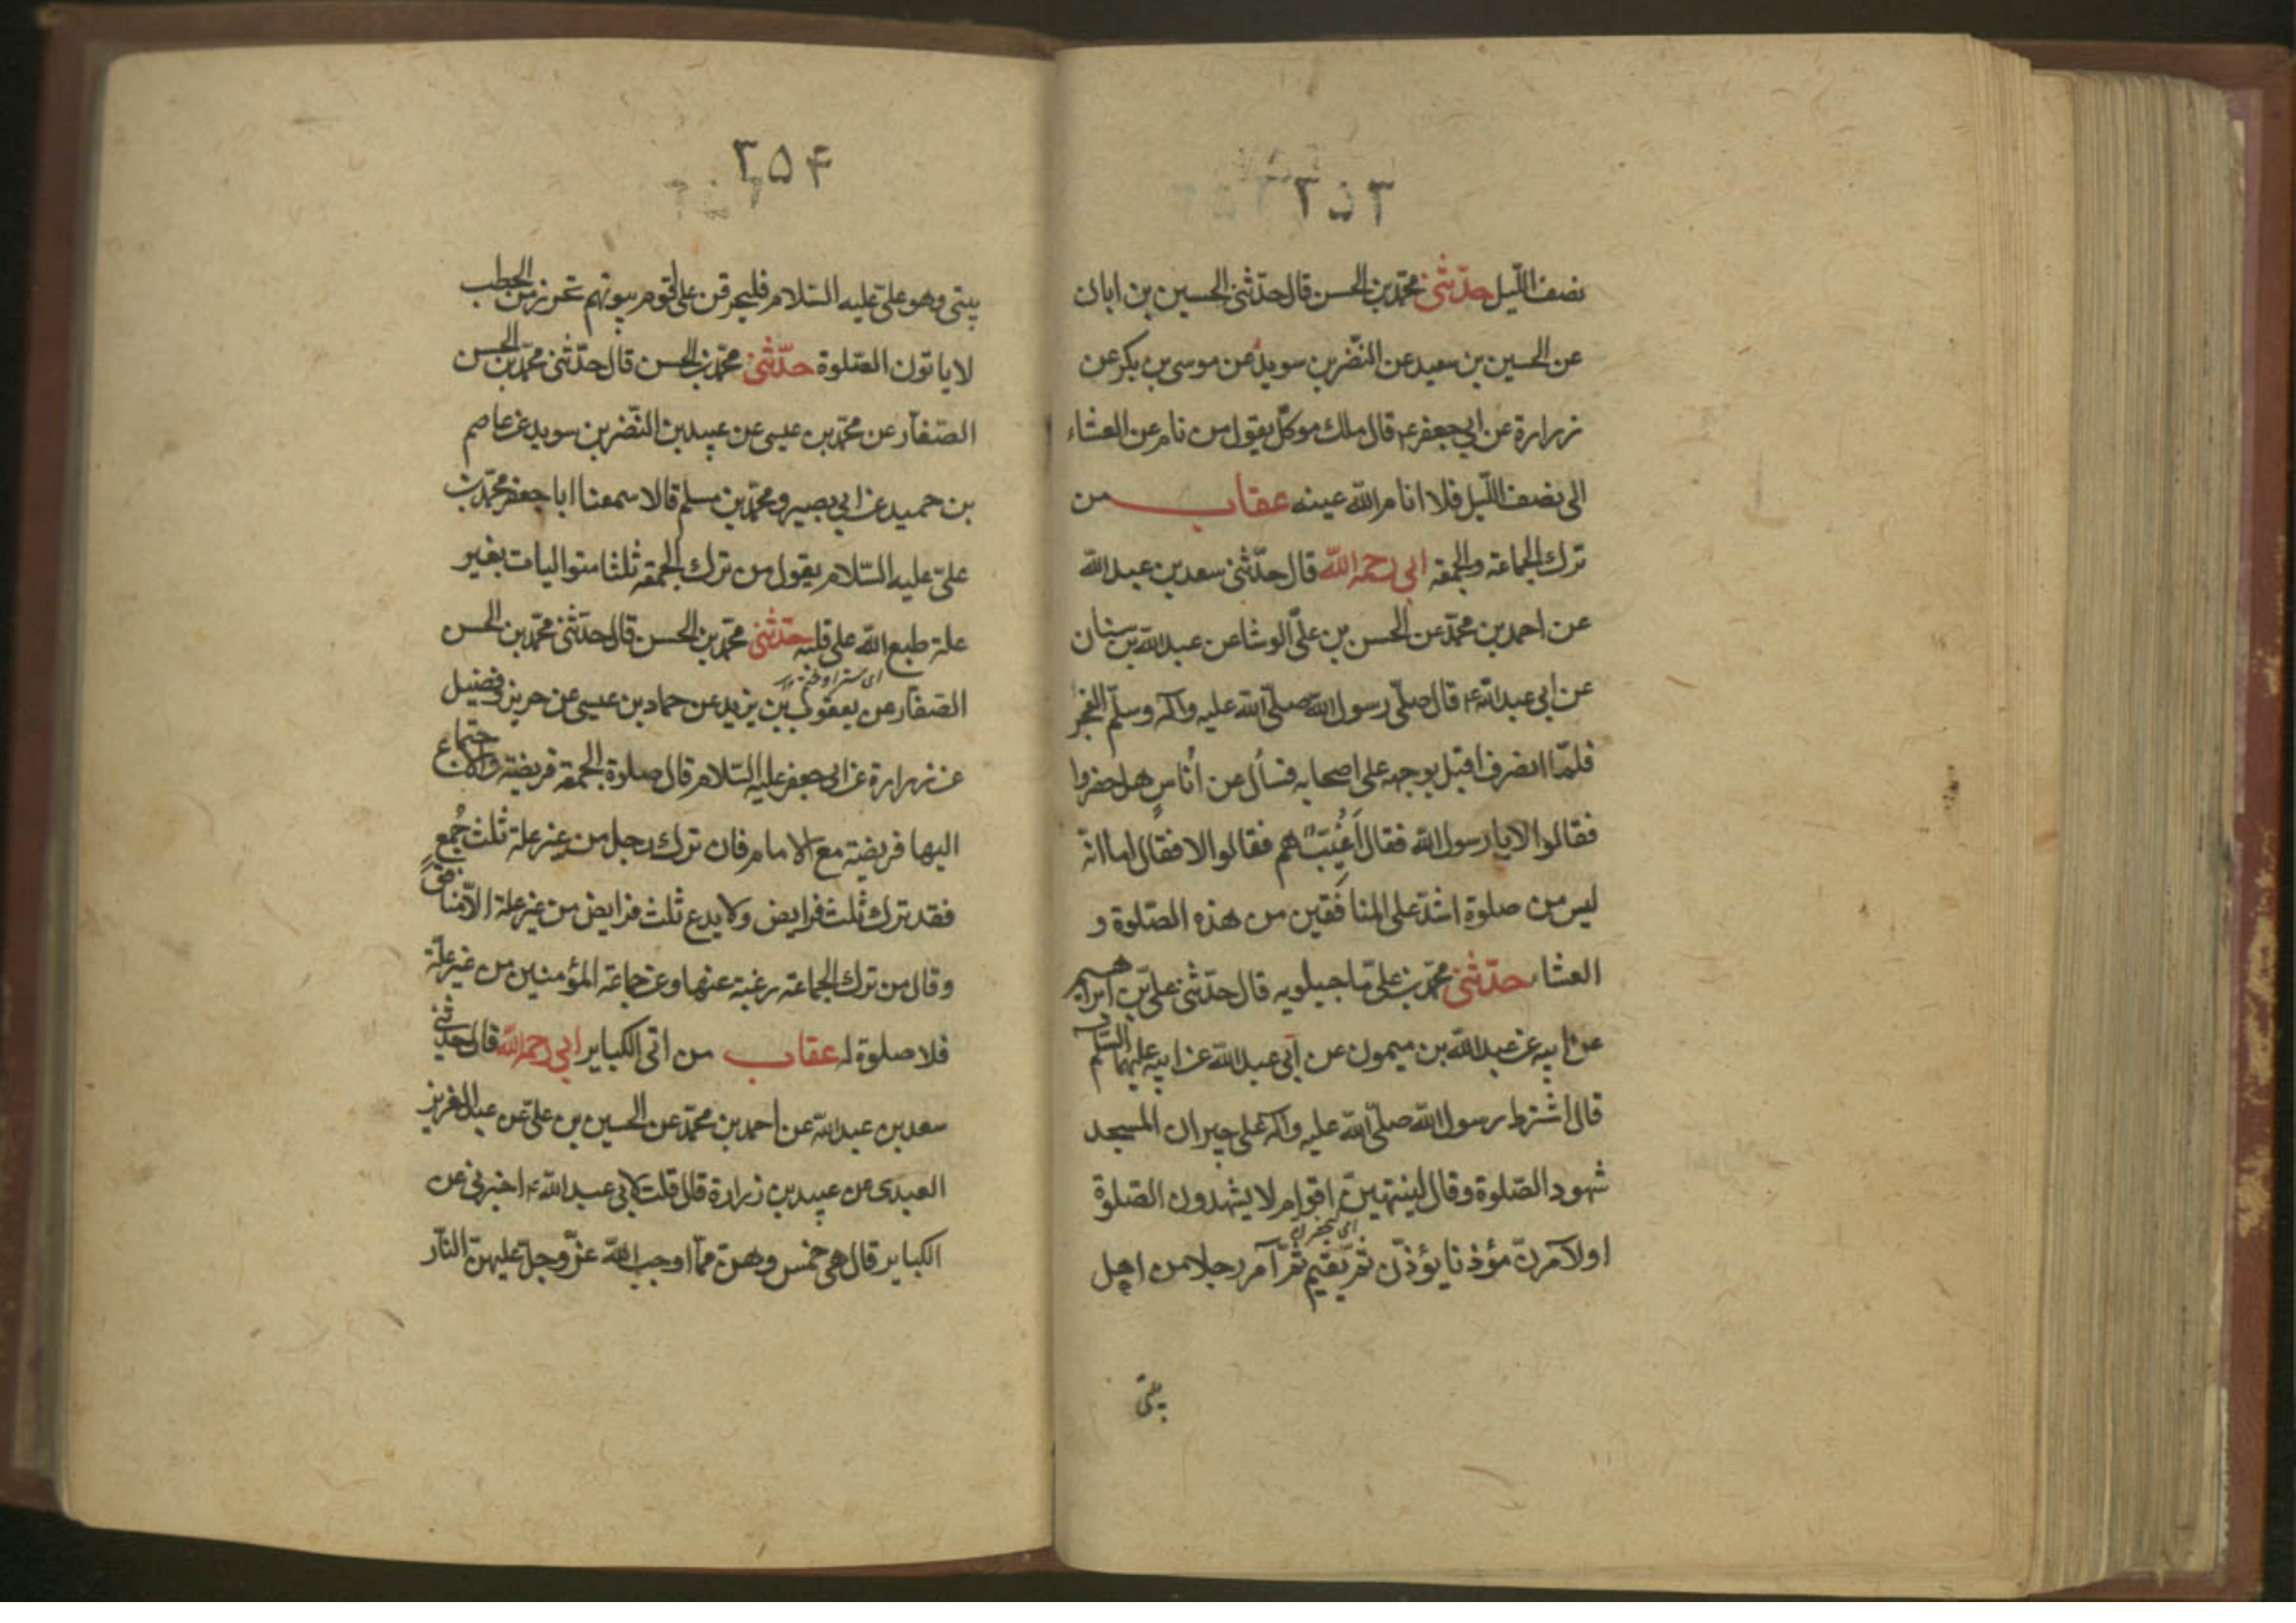 ٢٥٣
نصف اللّيل حدّثنى محمّد بن الحسن قال حدّثنى الحسين بن ابان
عن الحسين بن سعيد عن النّضر بن سويد عن موسى بن بكر عن
زرارة عن ابى جعفر ع قال ملك موكّل يقول من نام عن العشاء
الى نصف اللّيل فلا انام الله عينه عقاب من
ترك الجماعة والجمعة ابى رحمه الله قال حدّثنى سعد بن عبد الله
عن احمد بن محمّد عن الحسن بن علىّ الوشا عن عبد الله بن سنان
عن ابى عبد الله ع قال صلّى رسول الله صلّى الله عليه وآله وسلّم الفجر
فلمّا انصرف اقبل بوجهه على اصحابه فسأل عن أناسٍ هل حضروا
فقالوا لا يا رسول الله فقال أَغُيَّبٌ هم فقالوا لا فقال اما انّه
ليس من صلوة اشدّ على المنافقين من هذه الصّلوة و
العشاء حدّثنى محمّد بن على ماجيلويه قال حدّثنى على بن ابراهيم
عن ابيه عن عبد الله بن ميمون عن أبى عبد الله عن ابيه عليهما السّلام
قال اشترط رسول الله صلّى الله عليه وآله على جيران المسجد
شهود الصّلوة وقال لينتهينّ اقوام لا يشهدون الصّلوة
اولآمرنّ مؤذنا يؤذّن ثمّ يقيم ثمّ آمر رجلا من اهل
بيتى
٢٥۴
بيتى وهو علىّ عليه السّلام فليحرقن على قوم بيوتهم بحزم من الحطب
لا ياتون الصّلوة حدّثنى محمّد بن الحسن قال حدّثنى محمّد بن الحسن
الصّفّار عن محمّد بن عيسى عن عبيد بن النّضر بن سويد عن عاصم
بن حميد عن ابى بصير ومحمّد بن مسلم قالا سمعنا ابا جعفر محمّد بن
علىّ عليه السّلام يقول من ترك الجمعة ثلثا متواليات بغير
علة طبع الله على قلبه حدّثنى محمّد بن الحسن قال حدّثنى محمّد بن الحسن
الصّفّار عن يعقوب بن يزيد عن حماد بن عيسى عن حريز وفضيل
عن زرارة عن ابى جعفر عليه السّلام قال صلوة الجمعة فريضة والاجتماع
اليها فريضة مع الامام فان ترك رجل من غير علة ثلث جُمعٍ
فقد ترك ثلث فرايض ولا يدع ثلث فرايض من غير علة الّا منافقٌ
وقال من ترك الجماعة رغبة عنها وعن جماعة المؤمنين من غير علّة
فلا صلوة له عقاب من اتى الكباير ابى رحمه الله قال حدّثنى
سعد بن عبد الله عن احمد بن محمّد عن الحسين بن علىّ عن عبد العزيز
العبدى عن عبيد بن زرارة قال قلت لابى عبد الله ع اخبرنى عن
الكباير قال هى خمس وهنّ ممّا اوجب الله عزّ وجلّ عليهنّ النّار